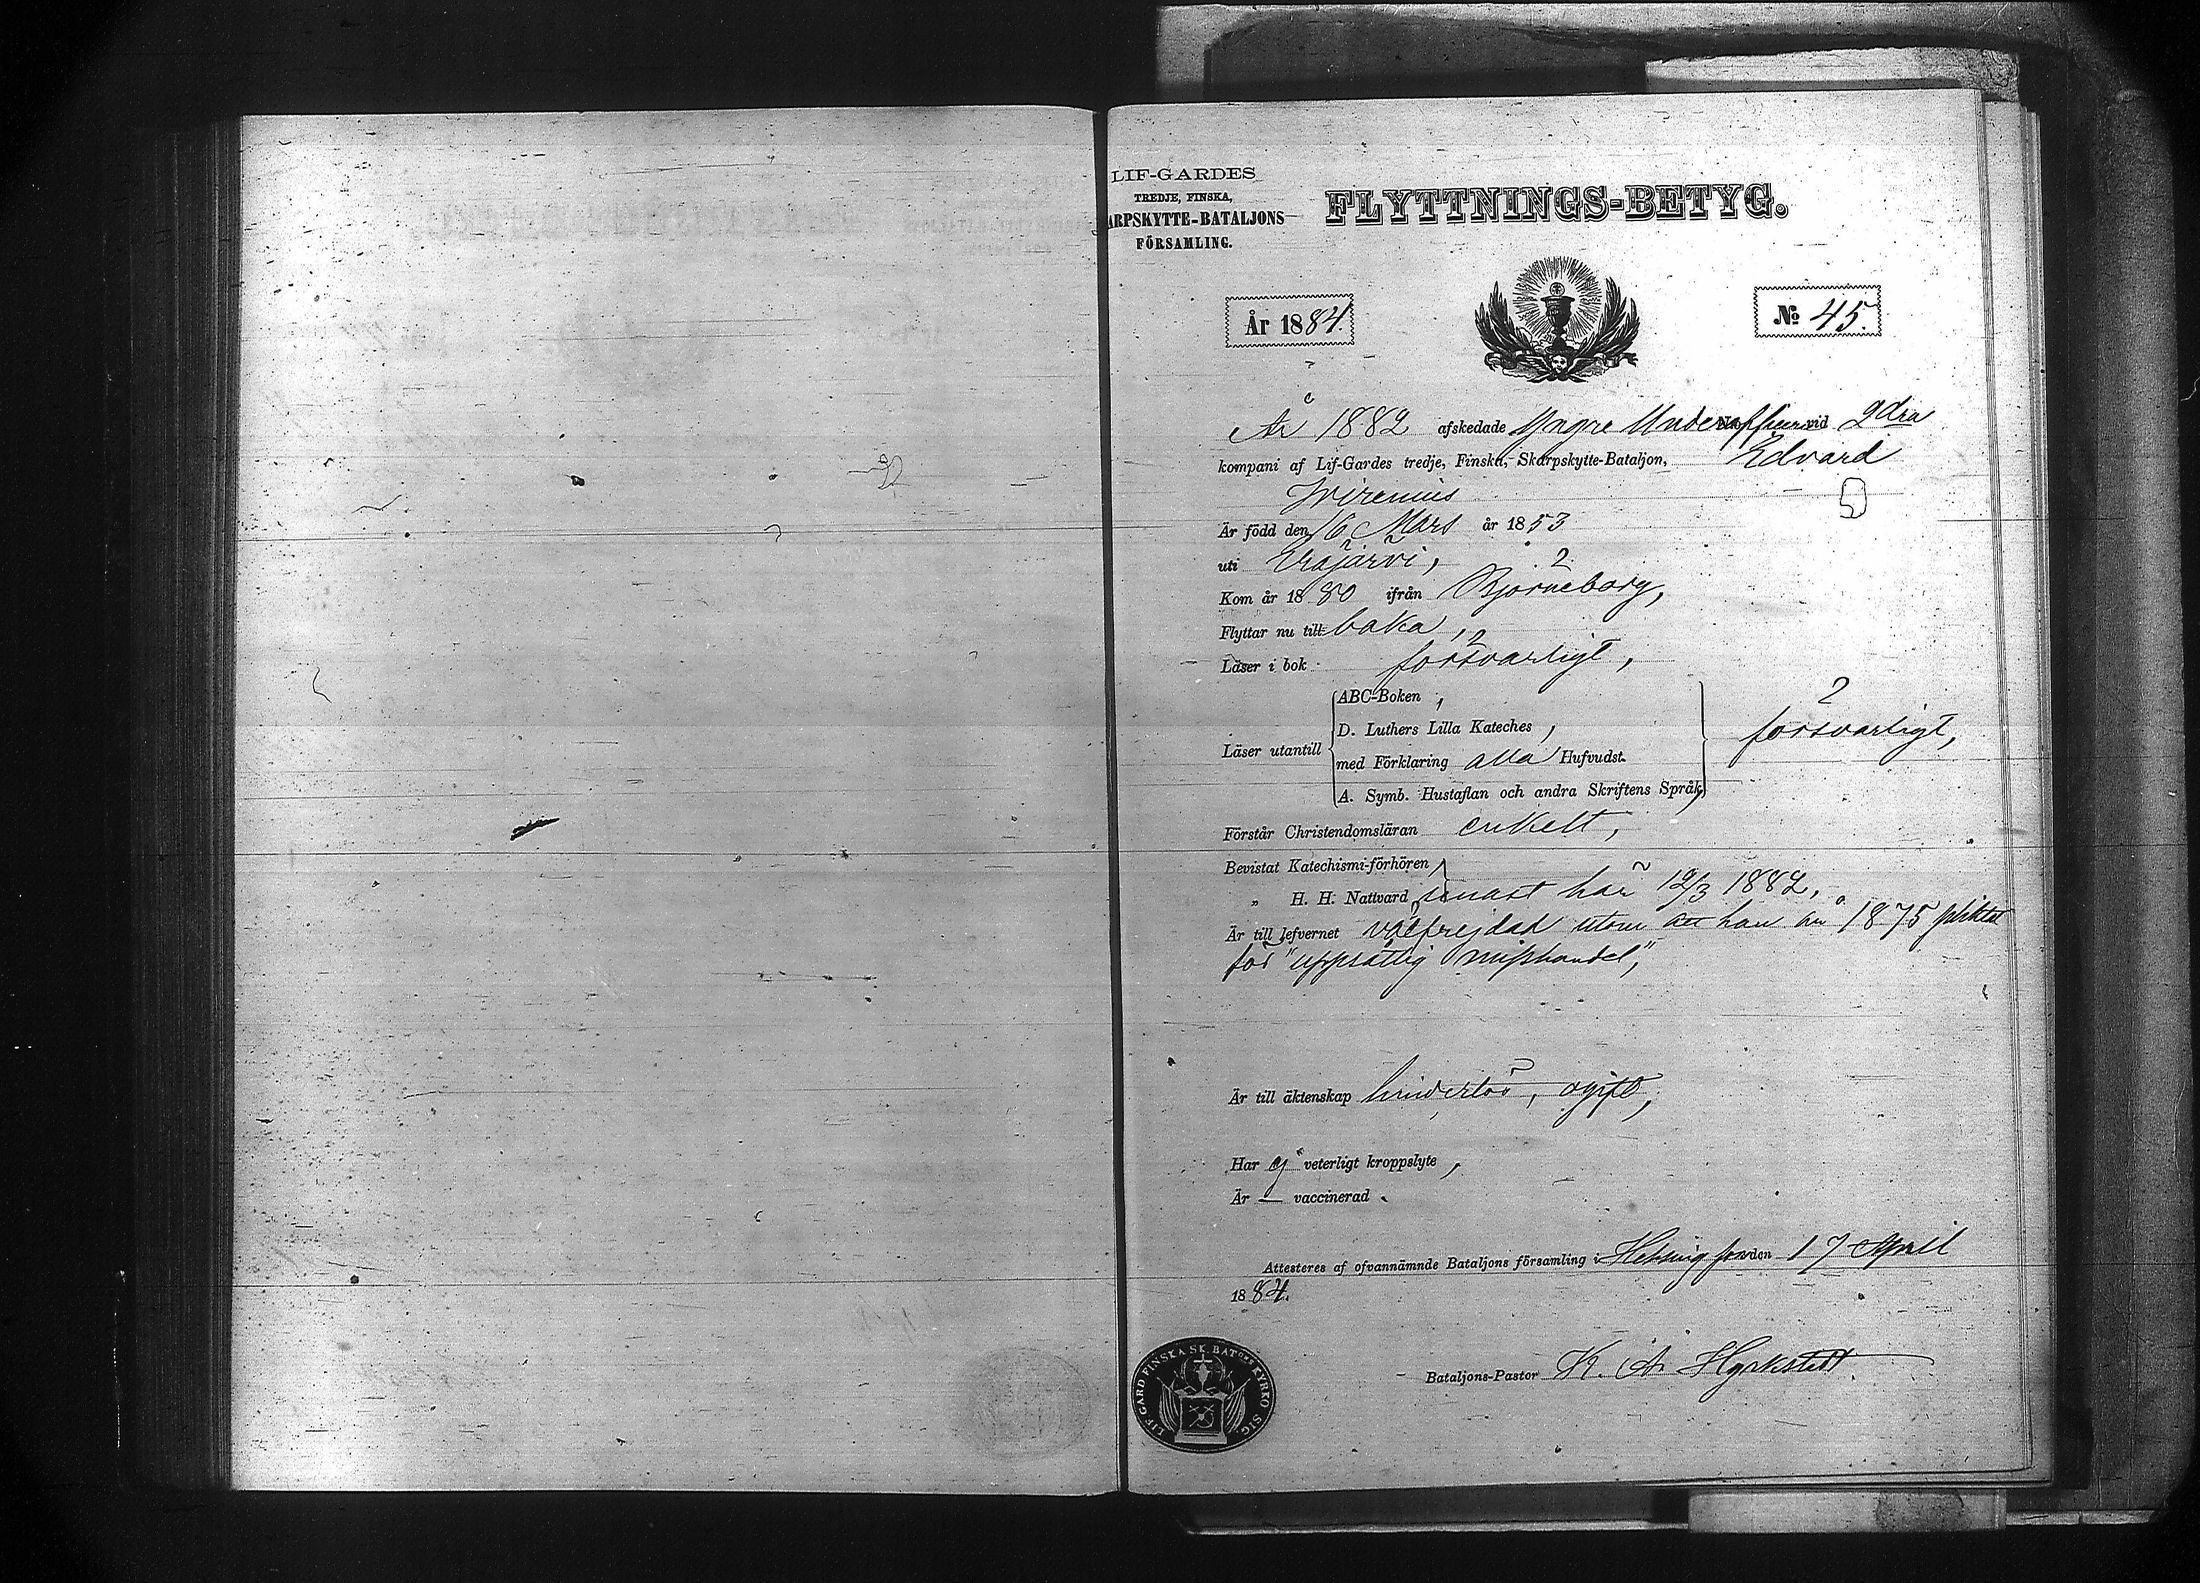 LIF-GARDES
TREDJE, FINSKA,
ARPSKYTTE-BATALJONS
FÖRSAMLING.
FLYTTNINGS-BETYG.
År 1884.
№ 45.
År 1882 afskedade Yngre Underofficer vid 2dra
kompani af Lif-Gardes tredje, Finska, Skarpskytte-Bataljon, Edvard
Wirenius
Är född den 16 Mars år 1853
uti Urajärvi,
Kom år 1880 ifrån Björneborg,
Flyttar nu till baka,
Läser i bok försvarligt,
ABC-Boken,
D. Luthers Lilla Kateches,
Läser utantill
med Förklaring alla Hufvudst.
försvarligt,
A. Symb. Hustaflan och andra Skriftens Språk,
Förstår Christendomsläran enkelt,
Bevistat Katechismi-förhören
„ H. H. Nattvard, senast här 12/3 1882,
Är till lefvernet välfrejdad utom att han år 1875 pliktat
för "uppsåtlig misshandel,"
Är till äktenskap hinderlös, ogift,
Har ej veterligt kroppslyte,
Är — vaccinerad.
Attesteras af ofvannämnde Bataljons församling i Helsingfors den 17 April
1884.
Bataljons-Pastor K. A. Hyrkstedt.
LIF. GARD FINSKA SK. BATns KYRKO SIG.